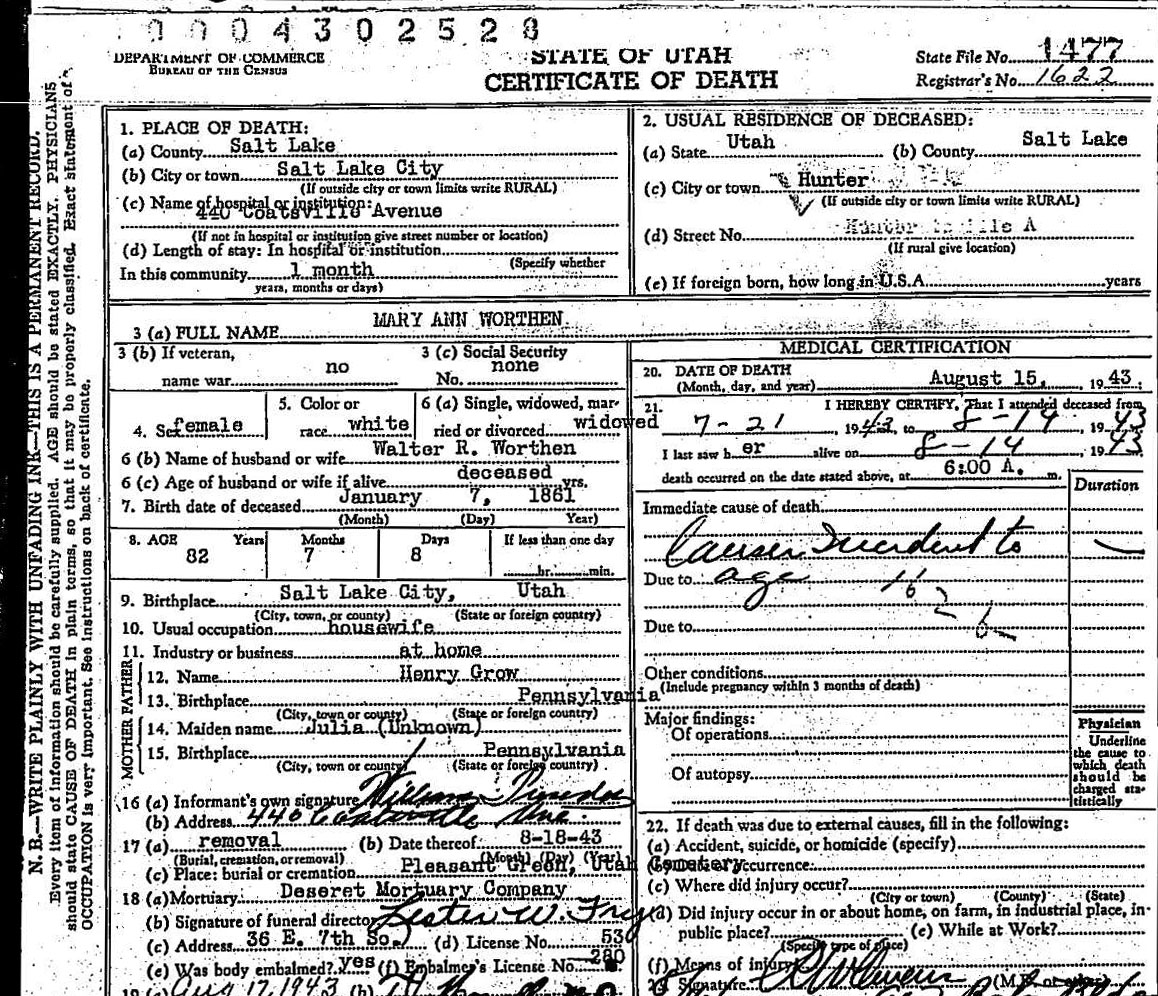 0004302528
DEPARTMENT OF COMMERCE
BUREAU OF THE CENSUS
STATE OF UTAH
CERTIFICATE OF DEATH
State File No. 1477
Registrar's No. 1622
N. B.—WRITE PLAINLY WITH UNFADING INK—THIS IS A PERMANENT RECORD.
Every item of information should be carefully supplied. AGE should be stated EXACTLY. PHYSICIANS
should state CAUSE OF DEATH in plain terms, so that it may be properly classified. Exact statement of
OCCUPATION is very important. See instructions on back of certificate.
1. PLACE OF DEATH:
(a) County Salt Lake
(b) City or town Salt Lake City
(If outside city or town limits write RURAL)
(c) Name of hospital or institution:
440 Coatsville Avenue
(If not in hospital or institution give street number or location)
(d) Length of stay: In hospital or institution
(Specify whether
In this community 1 month
years, months or days)
2. USUAL RESIDENCE OF DECEASED:
(a) State Utah (b) County Salt Lake
(c) City or town Hunter
(If outside city or town limits write RURAL)
(d) Street No.
(If rural give location)
(e) If foreign born, how long in U.S.A. years
3 (a) FULL NAME MARY ANN WORTHEN
3 (b) If veteran,
name war no
3 (c) Social Security
No. none
4. Sex female
5. Color or
race white
6 (a) Single, widowed, mar-
ried or divorced widowed
6 (b) Name of husband or wife Walter R. Worthen
6 (c) Age of husband or wife if alive deceased yrs.
7. Birth date of deceased January 7, 1861
(Month) (Day) Year)
8. AGE Years Months Days If less than one day
82 7 8 hr. min.
9. Birthplace Salt Lake City, Utah
(City, town, or county) (State or foreign country)
10. Usual occupation housewife
11. Industry or business at home
FATHER
12. Name Henry Grow
13. Birthplace Pennsylvania
(City, town or county) (State or foreign country)
MOTHER
14. Maiden name Julia (Unknown)
15. Birthplace Pennsylvania
(City, town or county) (State or foreign country)
16 (a) Informant's own signature
(b) Address 440 Coatsville Ave.
17 (a) removal (b) Date thereof 8-18-43
(Burial, cremation, or removal) (Month) (Day) (Year)
(c) Place: burial or cremation Pleasant Green, Utah Cemetery
18 (a) Mortuary Deseret Mortuary Company
(b) Signature of funeral director Lester W. Fry
(c) Address 36 E. 7th So. (d) License No. 530
(e) Was body embalmed? yes (f) Embalmer's License No. 280
19 (a) Aug 17, 1943 (b)
MEDICAL CERTIFICATION
20. DATE OF DEATH
(Month, day, and year) August 15, 1943;
21. I HEREBY CERTIFY, That I attended deceased from
7-21 1943, to 8-14 1943
I last saw her alive on 8-14 1943
death occurred on the date stated above, at 6:00 A. m.
Duration
Immediate cause of death
Causes Incident to
Due to age
162
Due to
6
Other conditions
(Include pregnancy within 3 months of death)
Major findings:
Of operations
Of autopsy
Physician
Underline
the cause to
which death
should be
charged sta-
tistically
22. If death was due to external causes, fill in the following:
(a) Accident, suicide, or homicide (specify)
(b) Date of occurrence:
(c) Where did injury occur?
(City or town) (County) (State)
(d) Did injury occur in or about home, on farm, in industrial place, in-
public place? (e) While at Work?
(Specify type of place)
(f) Means of injury
23 Signature (M.D. or